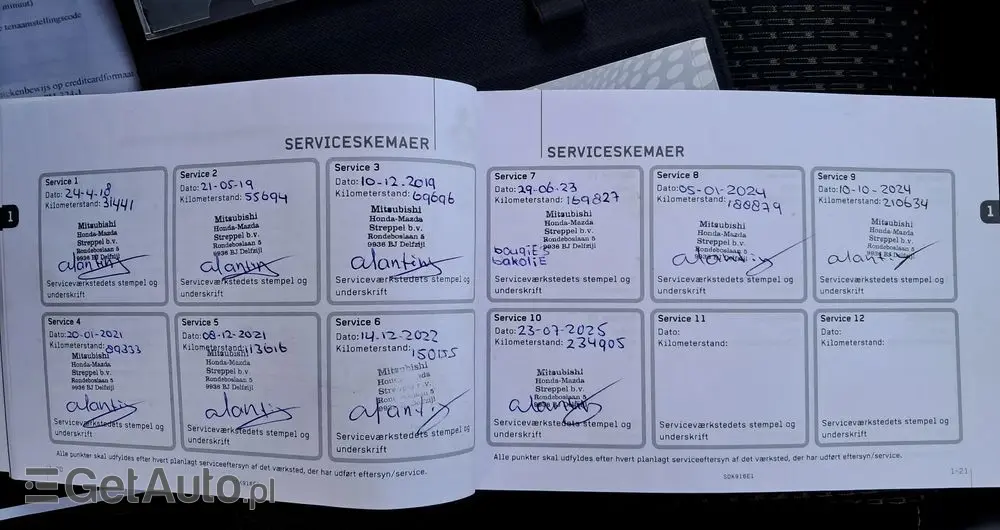 minuut)
e tenaamstellingscode
ekenbewijs op creditcardformaat
SERVICESKEMAER
Service 1
Dato: 24-4-18
Kilometerstand: 31441
Mitsubishi
Honda-Mazda
Streppel b.v.
Rondeboslaan 5
9936 BJ Delfzijl
Serviceværkstedets stempel og
underskrift
Service 2
Dato: 21-05-19
Kilometerstand: 55694
Mitsubishi
Honda-Mazda
Streppel b.v.
Rondeboslaan 5
9936 BJ Delfzijl
Serviceværkstedets stempel og
underskrift
Service 3
Dato: 10-12-2019
Kilometerstand: 69696
Mitsubishi
Honda-Mazda
Streppel b.v.
Rondeboslaan 5
9936 BJ Delfzijl
Serviceværkstedets stempel og
underskrift
1
Service 4
Dato: 20-01-2021
Kilometerstand: 89333
Mitsubishi
Honda-Mazda
Streppel b.v.
Rondeboslaan 5
9936 BJ Delfzijl
Serviceværkstedets stempel og
underskrift
Service 5
Dato: 08-12-2021
Kilometerstand: 113616
Mitsubishi
Honda-Mazda
Streppel b.v.
Rondeboslaan 5
9936 BJ Delfzijl
Serviceværkstedets stempel og
underskrift
Service 6
Dato: 14-12-2022
Kilometerstand: 150155
Mitsubishi
Streppel b.v.
Serviceværkstedets stempel og
underskrift
Alle punkter skal udfyldes efter hvert planlagt serviceeftersyn af det værksted, der har udført eftersyn/service.
SERVICESKEMAER
Service 7
Dato: 29-06-23
Kilometerstand: 169827
Mitsubishi
Honda-Mazda
Streppel b.v.
Rondeboslaan 5
9936 BJ Delfzijl
bougiES
Serviceværkstedets stempel og
underskrift
Service 8
Dato: 05-01-2024
Kilometerstand: 188879
Mitsubishi
Honda-Mazda
Streppel b.v.
Rondeboslaan 5
9936 BJ Delfzijl
Serviceværkstedets stempel og
underskrift
Service 9
Dato: 10-10-2024
Kilometerstand: 210634
Mitsubishi
Honda-Mazda
Streppel b.v.
Rondeboslaan 5
9936 BJ Delfzijl
Serviceværkstedets stempel og
underskrift
1
Service 10
Dato: 23-07-2025
Kilometerstand: 234905
Mitsubishi
Honda-Mazda
Streppel b.v.
Rondeboslaan 5
9936 BJ Delfzijl
Serviceværkstedets stempel og
underskrift
Service 11
Dato:
Kilometerstand:
Serviceværkstedets stempel og
underskrift
Service 12
Dato:
Kilometerstand:
Serviceværkstedets stempel og
underskrift
Alle punkter skal udfyldes efter hvert planlagt serviceeftersyn af det værksted, der har udført eftersyn/service.
1-21
SDK918E1
GetAuto.pl